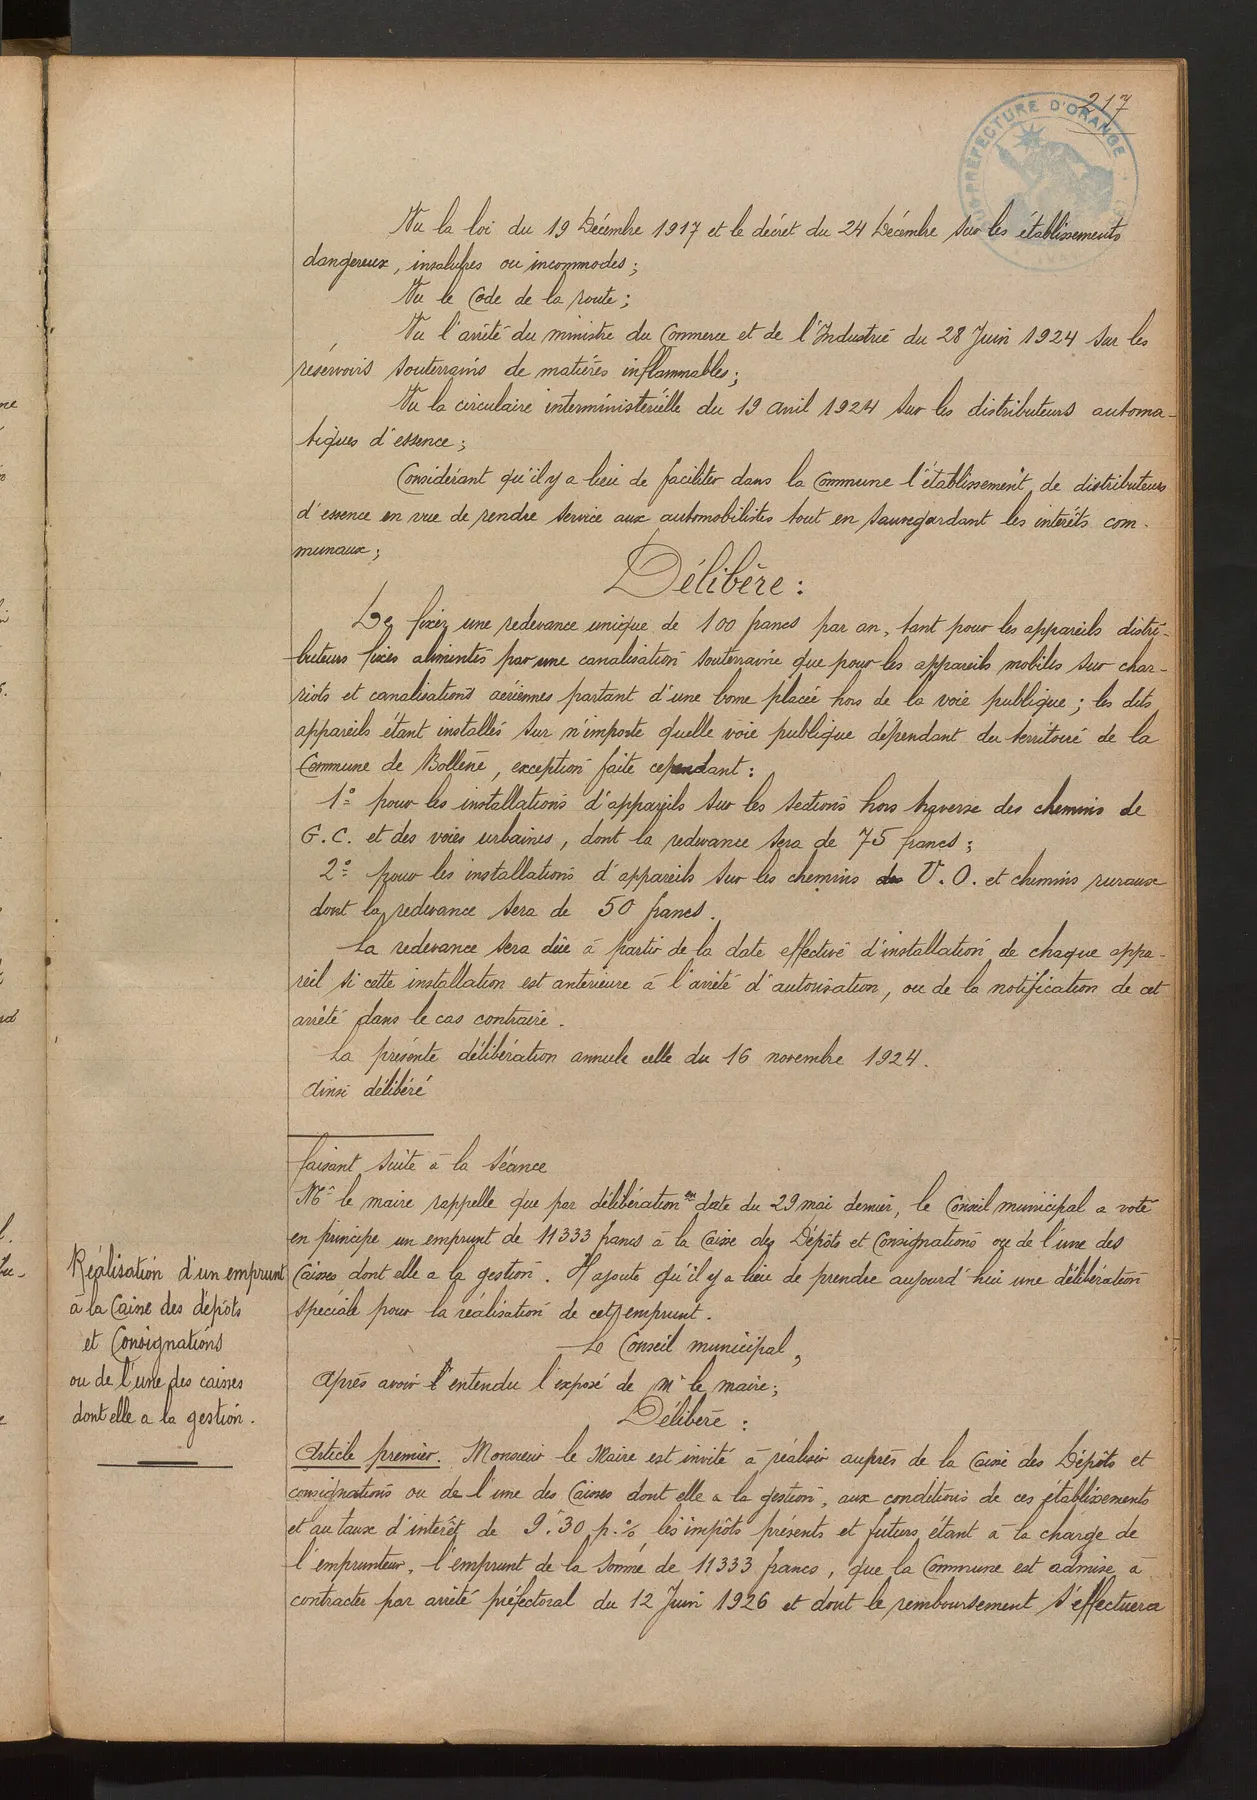 217
SOUS-PRÉFECTURE D'ORANGE
Vu la loi du 19 Décembre 1917 et le décret du 24 Décembre sur les établissements
dangereux, insalubres ou incommodes ;
Vu le Code de la route ;
Vu l'arrêté du ministre du Commerce et de l'Industrie du 28 Juin 1924 sur les
réservoirs souterrains de matières inflammables ;
Vu la circulaire interministérielle du 19 avril 1924 sur les distributeurs automa-
tiques d'essence ;
Considérant qu'il y a lieu de faciliter dans la Commune l'établissement de distributeurs
d'essence en vue de rendre service aux automobilistes tout en sauvegardant les intérêts com-
munaux ;
Délibère :
De fixer une redevance unique de 100 francs par an, tant pour les appareils distri-
buteurs fixes alimentés par une canalisation souterraine que pour les appareils mobiles sur char-
riots et canalisations aériennes partant d'une borne placée hors de la voie publique ; les dits
appareils étant installés sur n'importe quelle voie publique dépendant du territoire de la
Commune de Bollène, exception faite cependant :
1° pour les installations d'appareils sur les sections hors traverse des chemins de
G.C. et des voies urbaines, dont la redevance sera de 75 francs ;
2° pour les installations d'appareils sur les chemins V.O. et chemins ruraux
dont la redevance sera de 50 francs.
La redevance sera düe à partir de la date effective d'installation de chaque appa-
reil si cette installation est antérieure à l'arrêté d'autorisation, ou de la notification de cet
arrêté dans le cas contraire.
La présente délibération annule celle du 16 novembre 1924.
Ainsi délibéré
faisant suite à la séance
Mr le maire rappelle que par délibération en date du 29 mai dernier, le Conseil municipal a voté
en principe un emprunt de 11333 francs à la Caisse des Dépôts et Consignations ou de l'une des
Caisses dont elle a la gestion. Il ajoute qu'il y a lieu de prendre aujourd'hui une délibération
spéciale pour la réalisation de cet emprunt.
Le Conseil municipal,
Après avoir l'entendu l'exposé de Mr le maire ;
Délibère :
Article premier. Monsieur le Maire est invité à réaliser auprès de la Caisse des Dépôts et
consignations ou de l'une des Caisses dont elle a la gestion, aux conditions de ces établissements
et au taux d'intérêt de 9.30 p.% les impôts présents et futurs étant à la charge de
l'emprunteur, l'emprunt de la somme de 11333 francs, que la Commune est admise à
contracter par arrêté préfectoral du 12 Juin 1926 et dont le remboursement s'effectuera
Réalisation d'un emprunt
à la Caisse des dépôts
et Consignations
ou de l'une des caisses
dont elle a la gestion.